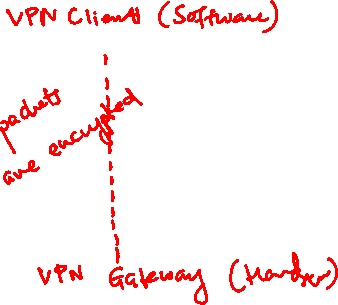 VPN Client (Software)
packets
are encrypted
VPN Gateway (Hardwr)